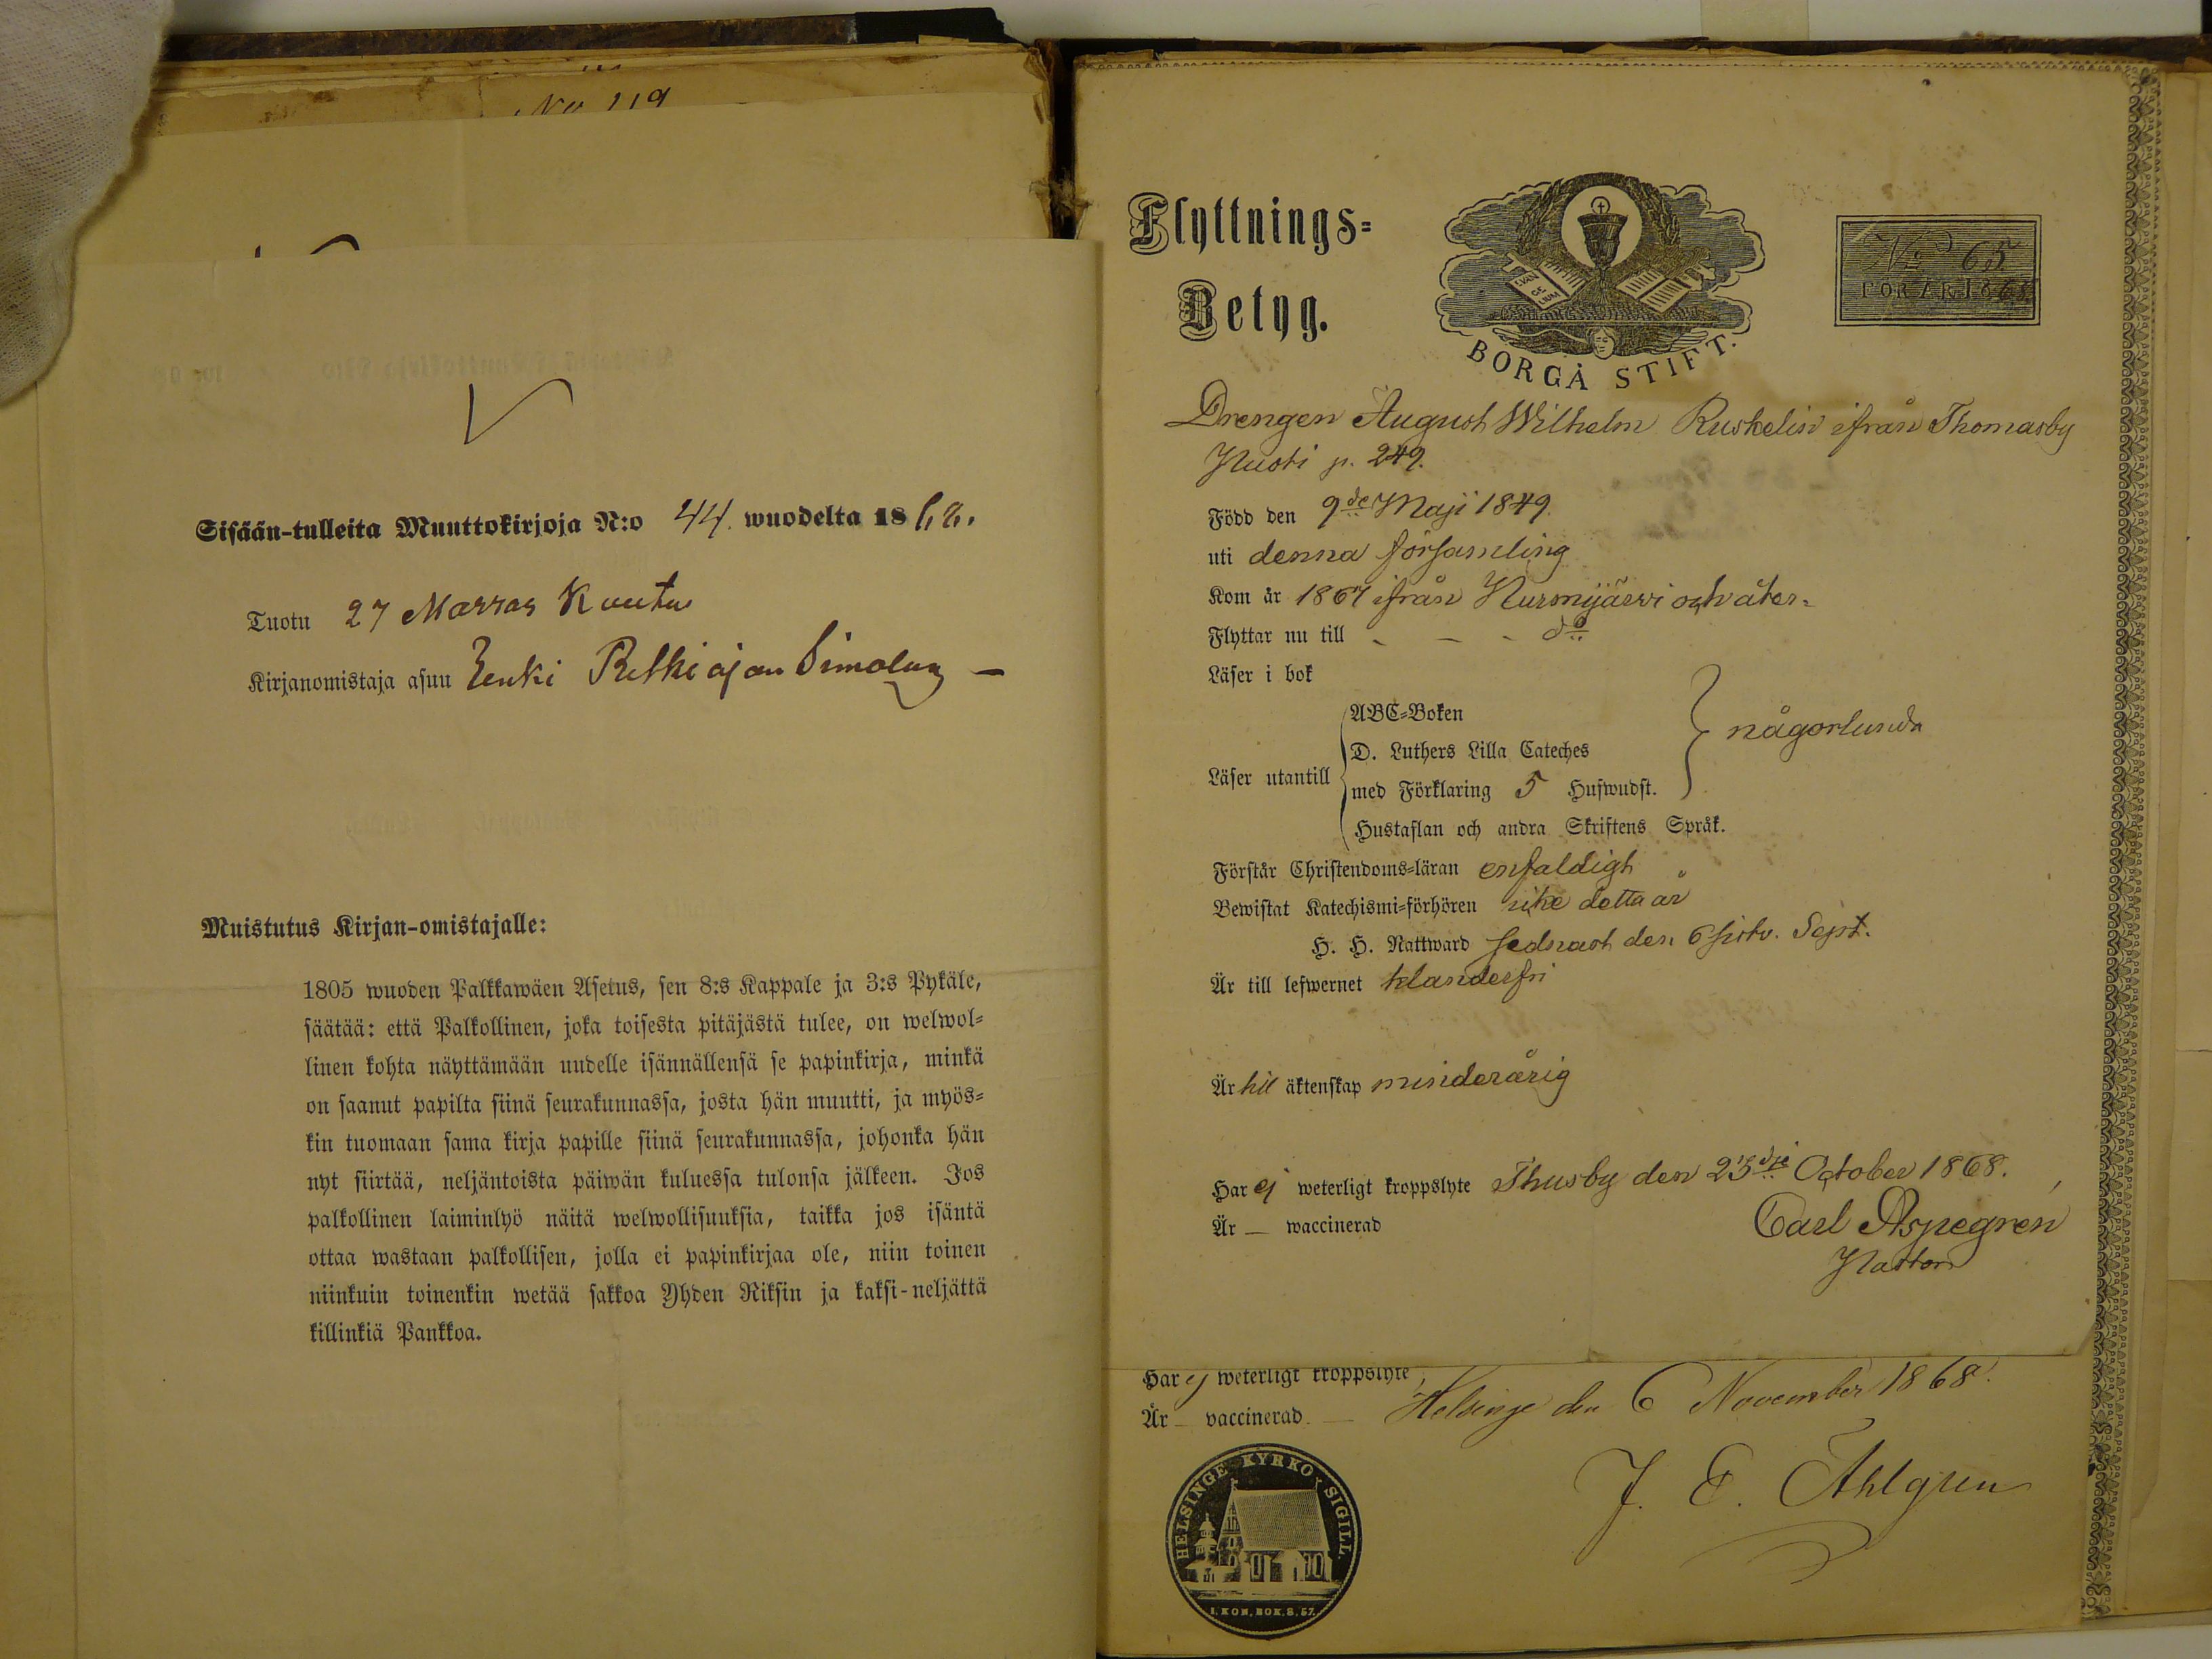 No 119
Sisään-tulleita Muuttokirjoja N:o 44. wuodelta 1868.
Tuotu 27 Marras Kuuta
Kirjanomistaja asuu
Muistutus Kirjan-omistajalle:
1805 wuoden Palkkawäen Asetus, sen 8:s Kappale ja 3:s Pykäle,
säätää: että Palkollinen, joka toisesta pitäjästä tulee, on welwol-
linen kohta näyttämään uudelle isännällensä se papinkirja, minkä
on saanut papilta siinä seurakunnassa, josta hän muutti, ja myös-
kin tuomaan sama kirja papille siinä seurakunnassa, johonka hän
nyt siirtää, neljäntoista päiwän kuluessa tulonsa jälkeen. Jos
palkollinen laiminlyö näitä welwollisuuksia, taikka jos isäntä
ottaa wastaan palkollisen, jolla ei papinkirjaa ole, niin toinen
niinkuin toinenkin wetää sakkoa Yhden Riksin ja kaksi-neljättä
killinkiä Pankkoa.
Flyttnings-
Betyg.
EVAN
GE
LIUM
BORGÅ STIFT.
No 65
FÖR ÅR 1868
Drengen August Wilhelm Ruskelin ifrån Thomasby
p. 249.
Född den 9de Maji 1849.
uti denna församling
Kom år 1867 ifrån Nurmijärvi och åter-
Flyttar nu till - - - do
Läser i bok
Läser utantill
ABC-Boken
D. Luthers Lilla Cateches
med Förklaring 5 Hufwudst.
Hustaflan och andra Skriftens Språk.
någorlunda
Förstår Christendoms-läran enfaldigt
Bewistat Katechismi-förhören icke detta år
H. H. Nattward sednast den 6 sistv. Sept.
Är till lefwernet klanderfri
Är till äktenskap minderårig
Har ej weterligt kroppslyte Thusby den 23dje October 1868.
Är — waccinerad
Carl Aspegren
Har ej weterligt kroppslyte
Är — vaccinerad. — Helsinge den 6 November 1868.
J. E. Ahlgren
HELSINGE KYRKO SIGILL.
I. KON. BOK. 8. 57.